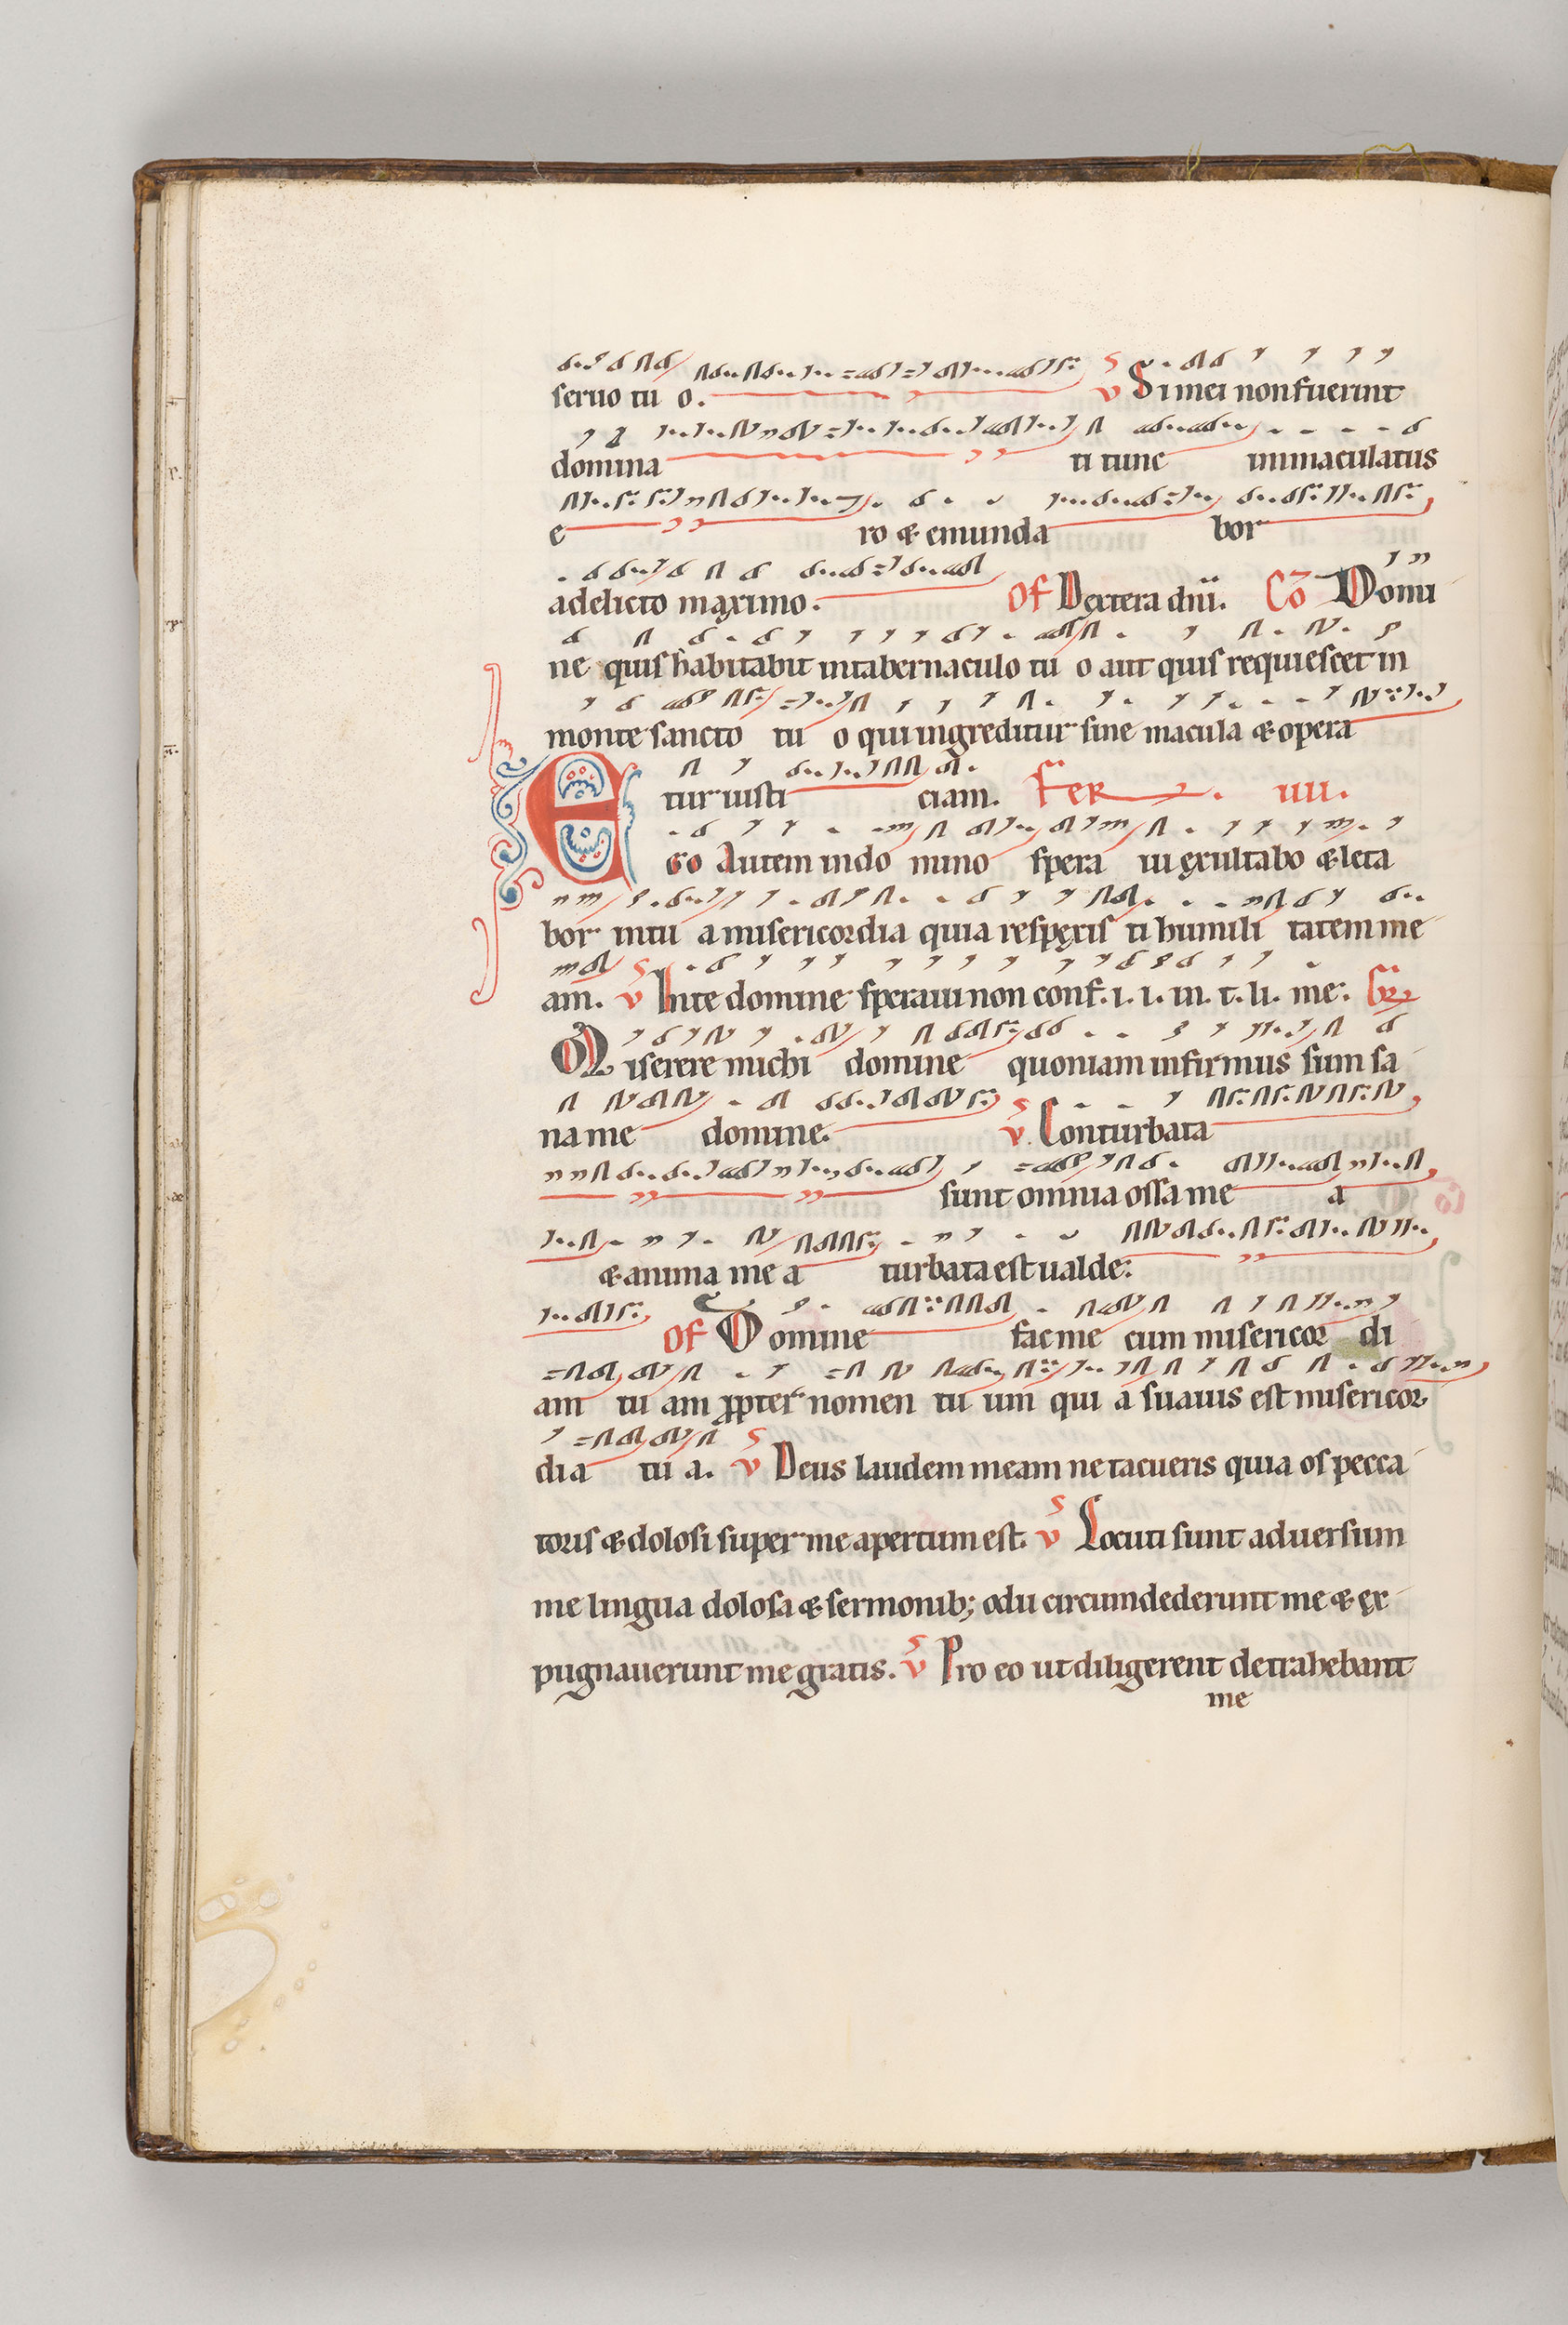 seruo tu o. v Si mei non fuerint
domina ti tunc inmaculatus
e ro & emunda bor
a delicto maximo. Of Dęxtera dñi. Cō Domi
ne quis habitabit in tabernaculo tu o aut quis requiescet in
monte sancto tu o qui ingreditur sine macula & opera
tur iusti ciam. Fer iiii.
Ego Autem in do mino spera ui ęxultabo & leta
bor in tu a misericordia quia respęxis ti humili tatem me
am. v In te domine speraui non conf. i. i. in. t. li. me. Gr
Miserere michi domine quoniam infirmus sum sa
na me domine. v. Conturbata
sunt omnia ossa me a
& anima me a turbata est ualde.
Of Domine fac me cum misericor di
am tu am propter nomen tu um qui a suauis est misericor
dia tu a. v Deus laudem meam ne tacueris quia os pecca
toris & dolosi super me apertum est. v Locuti sunt aduersum
me lingua dolosa & sermonib; odii circumdederunt me & ęx
pugnauerunt me gratis. v Pro eo ut diligerent detrahebant
me